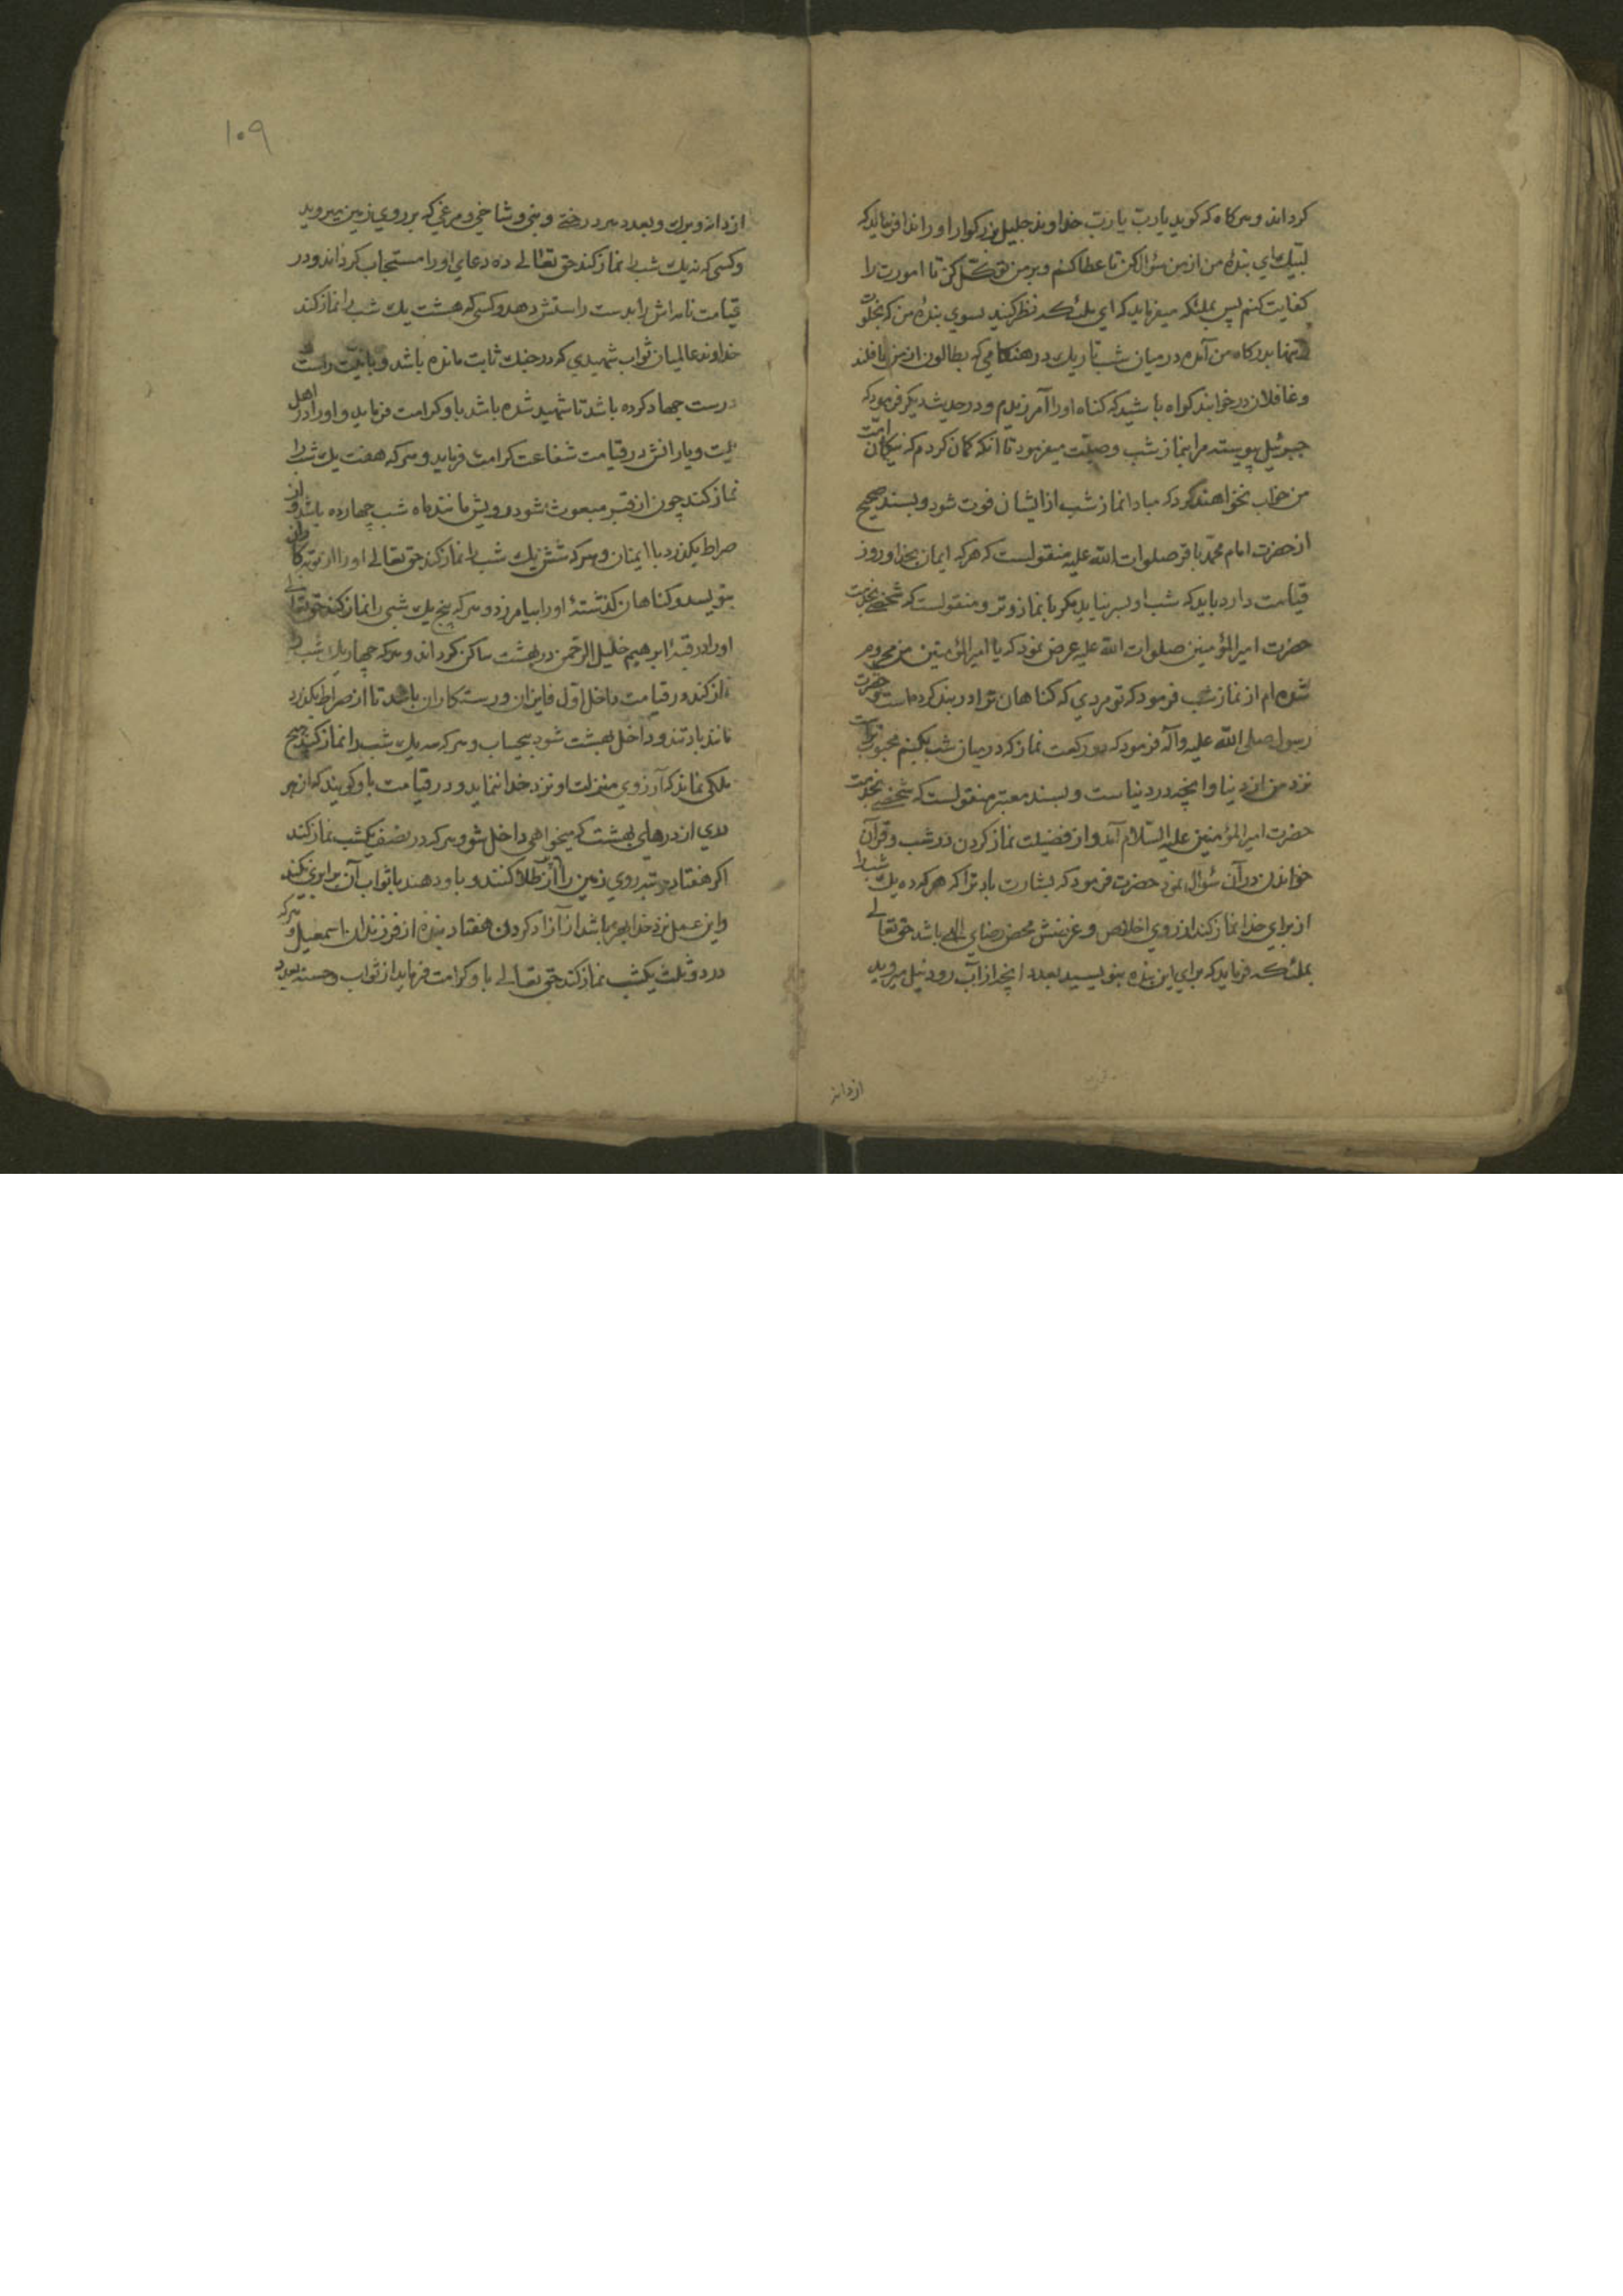 کرداند و هرکاه که کوید یا رب یا رب خداوند جلیل بزرکوار او را ندا فرماید که
لبیک ای بندهٔ من از من سؤال کن تا عطا کنم و بر من توکّل کن تا امورت را
کفایت کنم پس بملئکه میفرماید که ای ملئکه نظر کنید بسوی بندهٔ من که بخلوت
تنها بدرکاه من آمده در میان شب تاریک در هنکامی که بطالون از من غافلند
و غافلان در خوابند کواه باشید که کناه او را آمرزیدم و در حدیث دیکر فرمود که
جبرئیل پیوسته مرا بنماز شب وصیّت میفرمود تا آنکه کمان کردم که نیکان امّت
من خواب نخواهند کرد که مبادا نماز شب از ایشان فوت شود و بسند صحیح
از حضرت امام محمّد باقر صلوات الله علیه منقولست که هرکه ایمان بخدا و روز
قیامت دارد باید که شب او بسر نیاید مکر با نماز وتر و منقولست که شخصی بخدمت
حضرت امیر المؤمنین صلوات الله علیه عرض نمود که یا امیر المؤمنین من محروم
شده‌ام از نماز شب فرمود که تو مردی که کناهان تو ترا در بند کرده است و حضرت
رسول صلی الله علیه وآله فرمود که دو رکعت نماز که در میان شب بکنم محبوب‌تر است
نزد من از دنیا و آنچه در دنیاست و بسند معتبر منقولست که شخصی بخدمت
حضرت امیر المؤمنین علیه السّلام آمد و از فضیلت نماز کردن در شب و قرآن
خواندن در آن سؤال نمود حضرت فرمود که بشارت باد ترا که هرکه ده یک شب را
از برای خدا نماز کند از روی اخلاص و غرضش محض رضای الهی باشد حق تعالی
بملئکه فرماید که برای این بنده بنویسید بعدد آنچه از آب رود نیل میروید
از دانه
۱۰۹
از دانه و برک و بعدد هر درختی و بنی و شاخی و مرغی که بر روی زمین میروید
و کسی که نه یک شب را نماز کند حق تعالی ده دعای او را مستجاب کرداند و در
قیامت نامه‌اش را بدست راستش دهد و کسی که هشت یک شب را نماز کند
خداوند عالمیان ثواب شهیدی که در جنک ثابت مانده باشد و با نیّت راست
درست جهاد کرده باشد تا شهید شده باشد باو کرامت فرماید و او را در اهل
بیت و یارانش در قیامت شفاعت کرامت فرماید و هرکه هفت یک شب را
نماز کند چون از قبر مبعوث شود رویش مانند ماه شب چهارده باشد و از
صراط بکذرد با ایمنان و هرکه شش یک شب را نماز کند حق تعالی او را از توبه کاران
بنویسد و کناهان کذشتهٔ او را بیامرزد و هرکه پنج یک شبی را نماز کند حق تعالی
او را در قبّهٔ ابرهیم خلیل الرحمن در بهشت ساکن کرداند و هرکه چهار یک شب را
نماز کند در قیامت داخل اوّل فایزان و رستکاران باشد تا از صراط بکذرد
مانند باد تند و داخل بهشت شود بیحساب و هرکه سه یک شب را نماز کند هیچ
ملکی نماند که آرزوی منزلت او نزد خدا ننماید و در قیامت باو کویند که از هر
دری از درهای بهشت که میخواهی داخل شو و هرکه در نصف یکشب نماز کند
اکر هفتاد مرتبه روی زمین را پر از طلا کنند و باو دهند با ثواب آن برابری نکند
و این عمل نزد خدا بهتر باشد از آزاد کردن هفتاد بنده از فرزندان اسمعیل و هرکه
در دو ثلث یکشب نماز کند حق تعالی باو کرامت فرماید از ثواب و حسنه بعدد